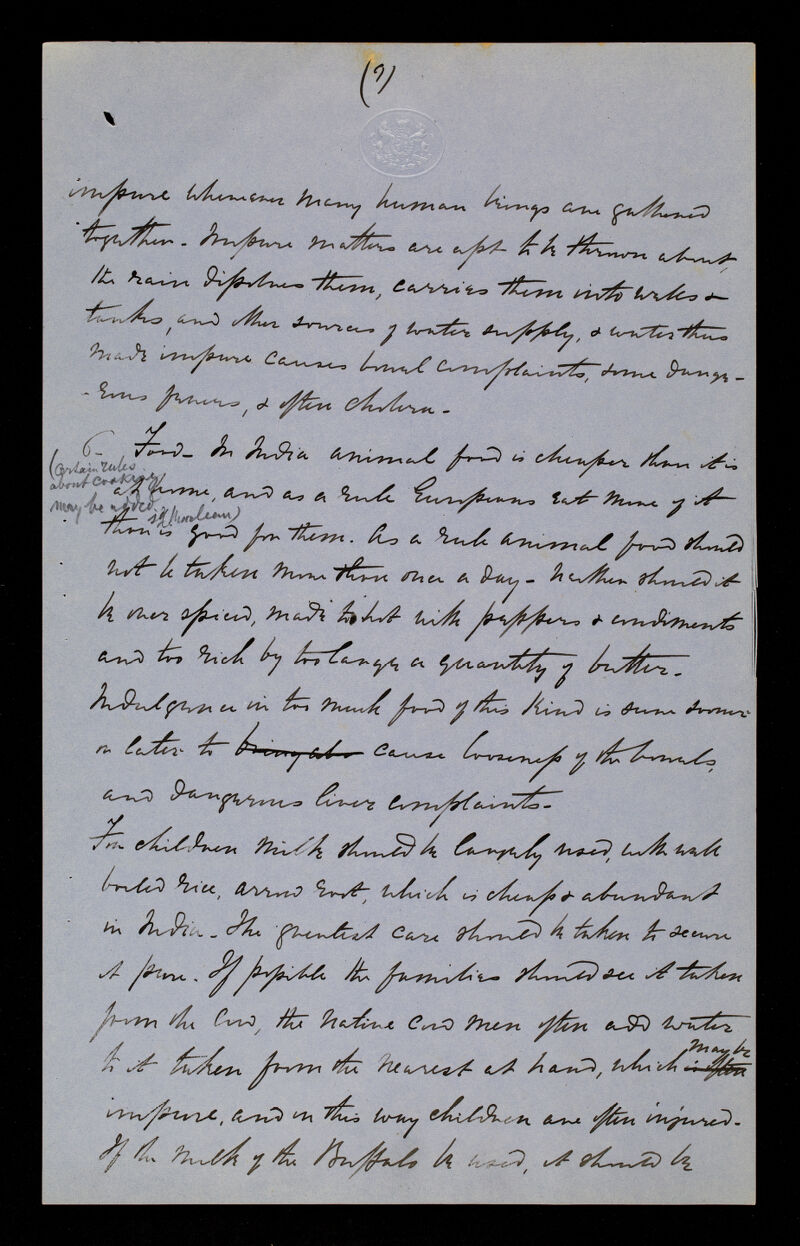 (9)
impure whenever many human beings are gathered
together. Impure matters are apt to be thrown about,
the rain dissolves them, carries them into wells &
tanks, and other sources of water supply, & water thus
made impure causes bowel complaints, some dange-
-rous fevers, & often cholera.
6. Food. In India animal food is cheaper than it is
(Certain rules
about cooking
may be added
at home, and as a rule Europeans eat more of it
than is good for them. As a rule animal food should
not be taken more than once a day. Neither should it
be over spiced, made too hot with peppers & condiments
and too rich by too large a quantity of butter.
Indulgence in too much food of this kind is sure sooner
or later to cause looseness of the bowels,
and dangerous liver complaints.
For children milk should be largely used, with well
boiled rice, arrow root, which is cheap & abundant
in India. The greatest care should be taken to secure
it pure. If possible the families should see it taken
from the Cow, the native Cow men often add water
to it taken from the nearest at hand, which is often may be
impure, and in this way children are often injured.
If the milk of the Buffalo be used, it should be